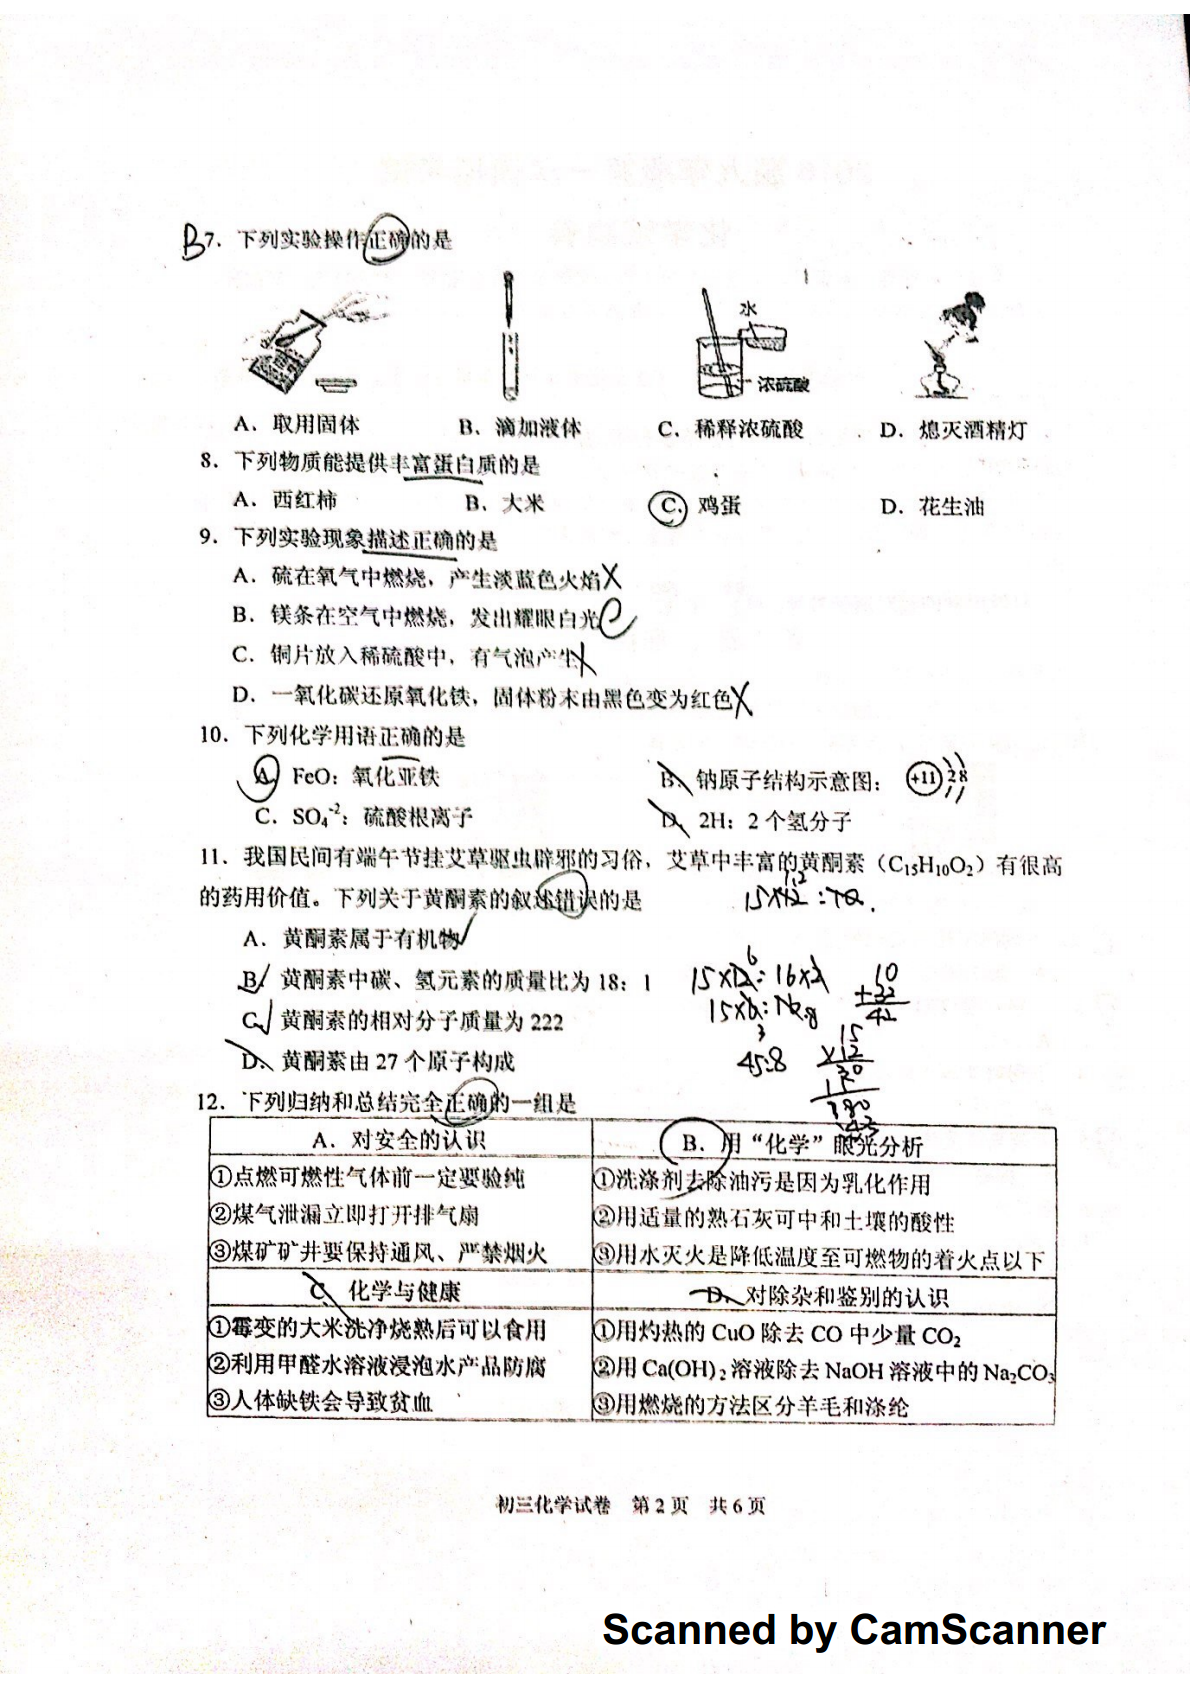 B 7．下列实验操作正确的是
水
浓硫酸
A．取用固体 B．滴加液体 C．稀释浓硫酸 D．熄灭酒精灯
8．下列物质能提供丰富蛋白质的是
A．西红柿 B．大米 C．鸡蛋 D．花生油
9．下列实验现象描述正确的是
A．硫在氧气中燃烧，产生淡蓝色火焰 X
B．镁条在空气中燃烧，发出耀眼白光
C．铜片放入稀硫酸中，有气泡产生 X
D．一氧化碳还原氧化铁，固体粉末由黑色变为红色 X
10．下列化学用语正确的是
A．FeO：氧化亚铁 B．钠原子结构示意图： +11 2 8
C．SO₄⁻²：硫酸根离子 D．2H：2 个氢分子
11．我国民间有端午节挂艾草驱虫辟邪的习俗，艾草中丰富的黄酮素（C₁₅H₁₀O₂）有很高
的药用价值。下列关于黄酮素的叙述错误的是
A．黄酮素属于有机物 ✓
B．黄酮素中碳、氢元素的质量比为 18：1
15×12：16×2
10
+32
42
C．黄酮素的相对分子质量为 222
D．黄酮素由 27 个原子构成
45:8
15
×12
30
15
180
12．下列归纳和总结完全正确的一组是
A．对安全的认识 B．用“化学”眼光分析
①点燃可燃性气体前一定要验纯 ①洗涤剂去除油污是因为乳化作用
②煤气泄漏立即打开排气扇 ②用适量的熟石灰可中和土壤的酸性
③煤矿矿井要保持通风、严禁烟火 ③用水灭火是降低温度至可燃物的着火点以下
C．化学与健康 D．对除杂和鉴别的认识
①霉变的大米洗净烧熟后可以食用 ①用灼热的 CuO 除去 CO 中少量 CO₂
②利用甲醛水溶液浸泡水产品防腐 ②用 Ca(OH)₂ 溶液除去 NaOH 溶液中的 Na₂CO₃
③人体缺铁会导致贫血 ③用燃烧的方法区分羊毛和涤纶
初三化学试卷 第 2 页 共 6 页
Scanned by CamScanner